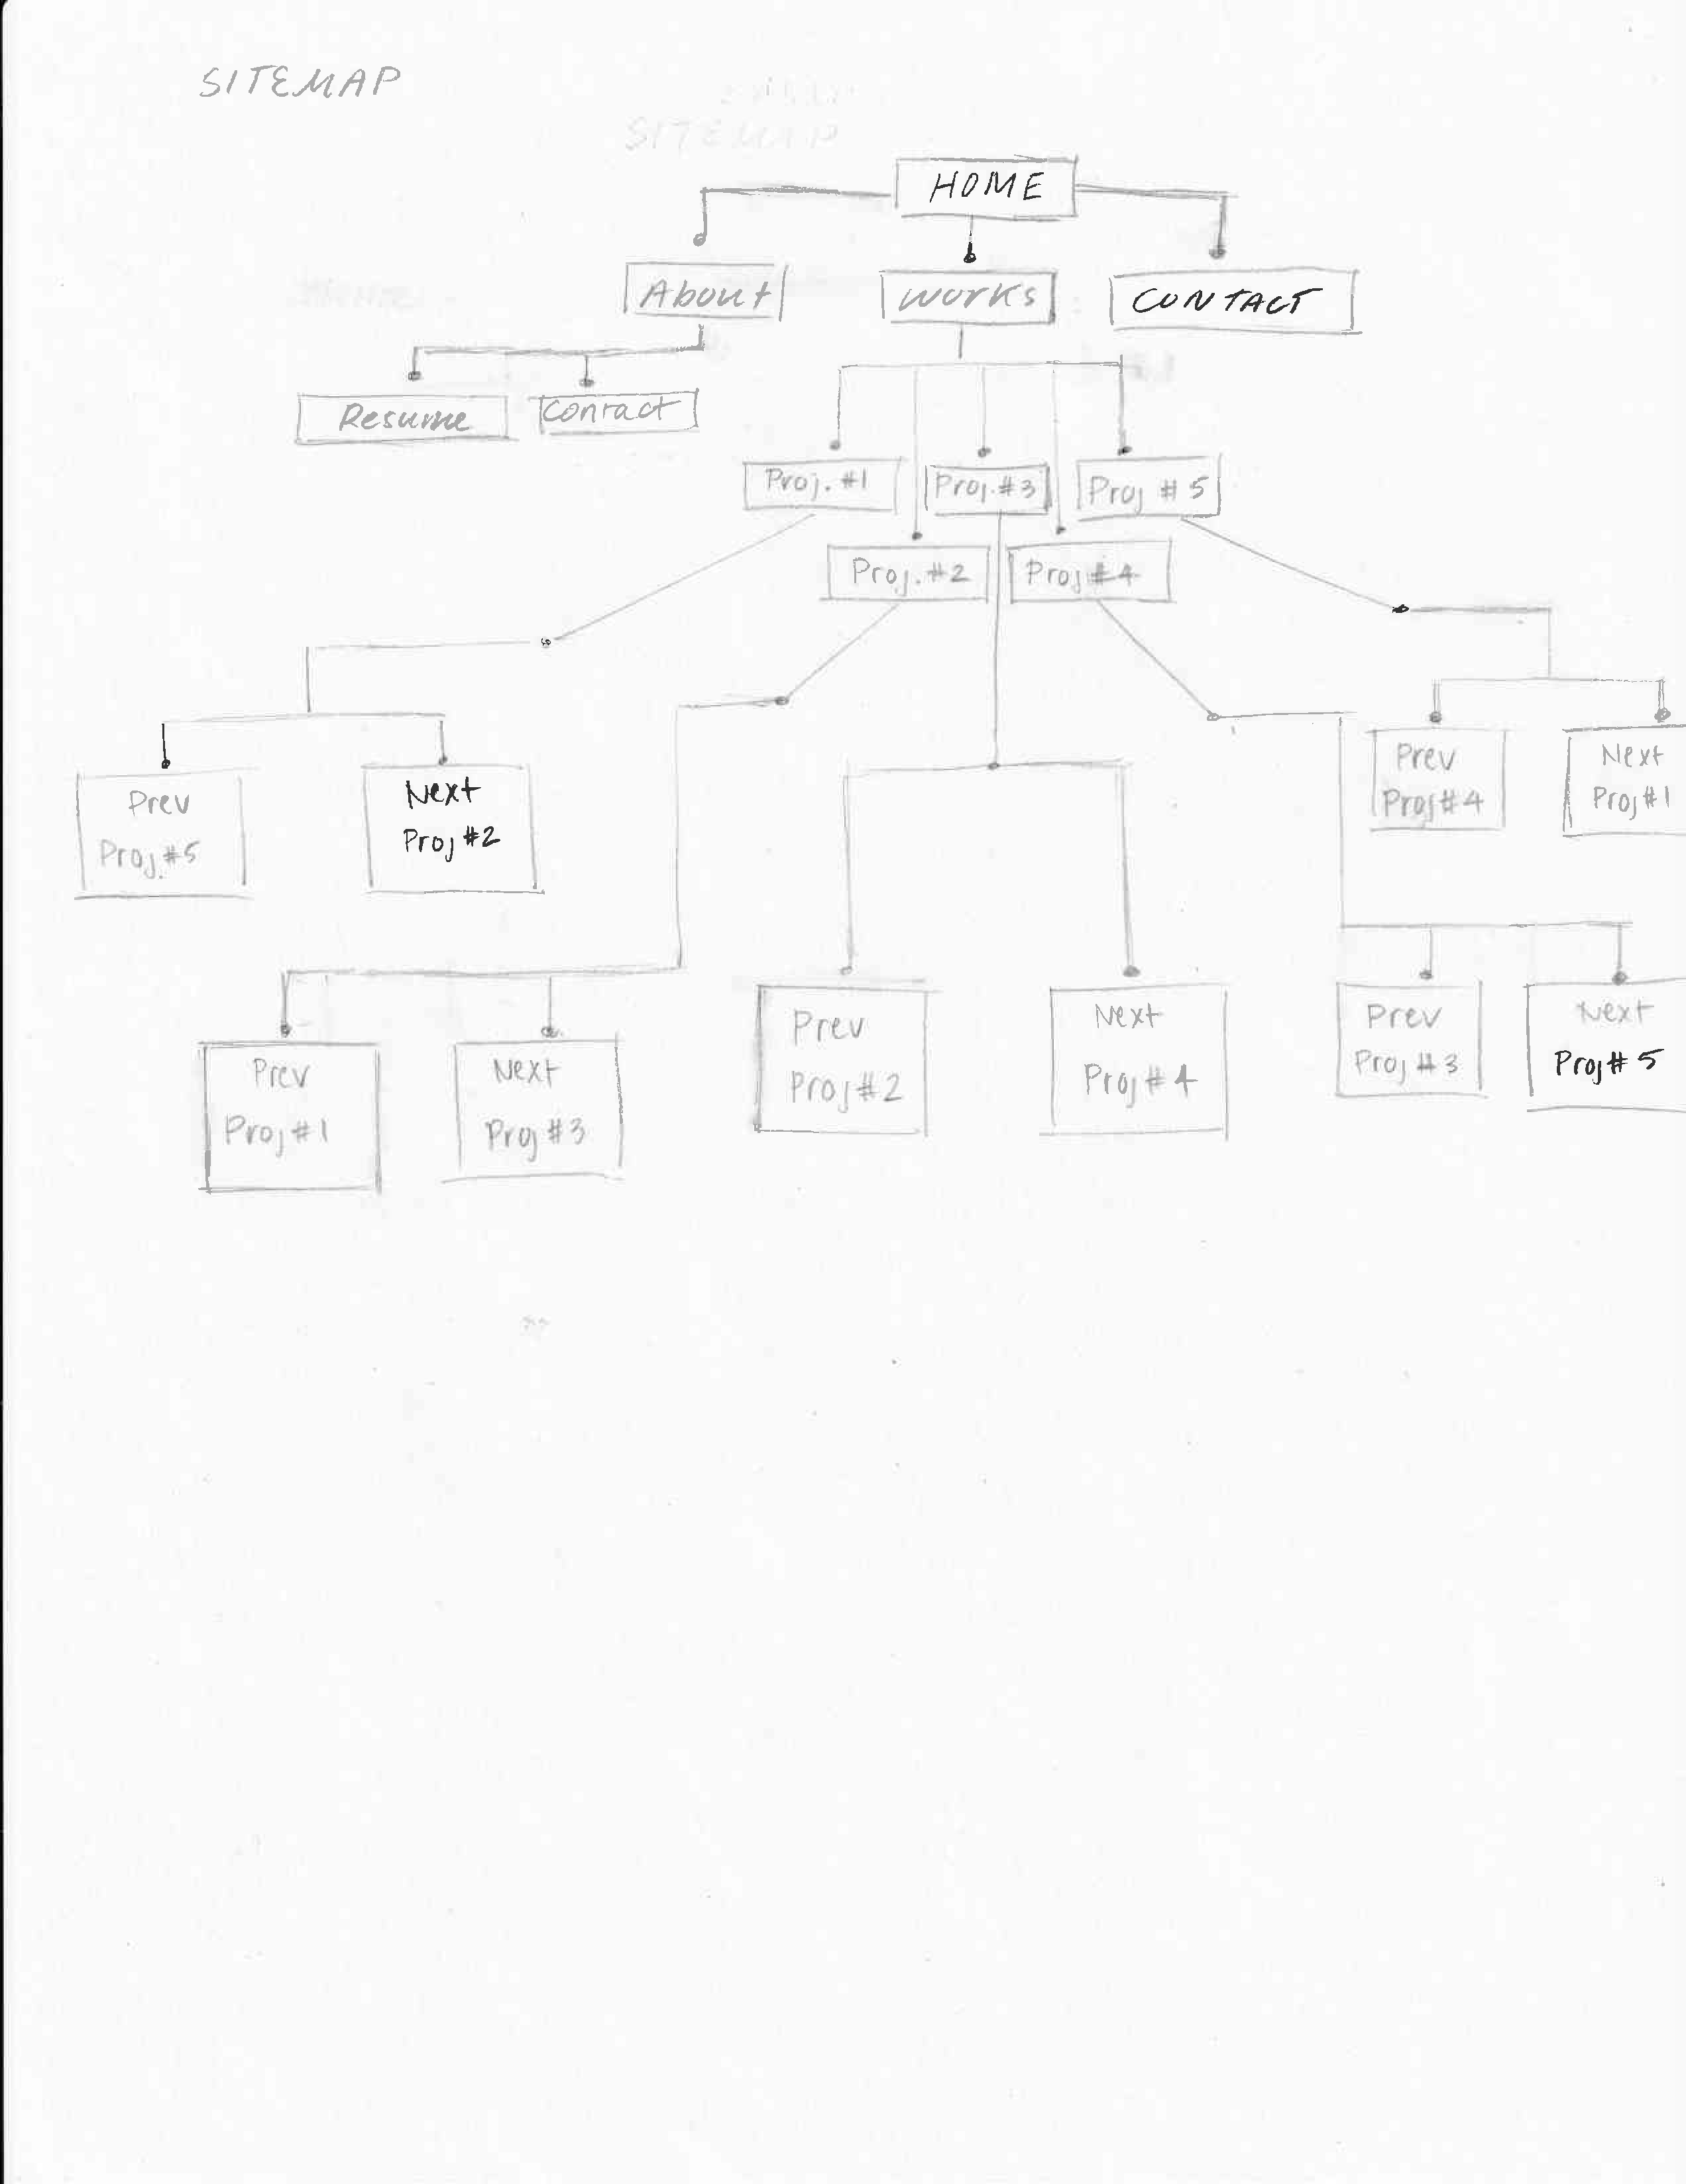 SITEMAP
SITEMAP
HOME
About
Works
CONTACT
Resume
Contact
Proj. #1
Proj. #3
Proj # 5
Proj. #2
Proj #4
Prev
Proj #5
Next
Proj #2
Prev
Proj #4
Next
Proj #1
Prev
Proj #1
Next
Proj #3
Prev
Proj #2
Next
Proj #4
Prev
Proj #3
Next
Proj # 5